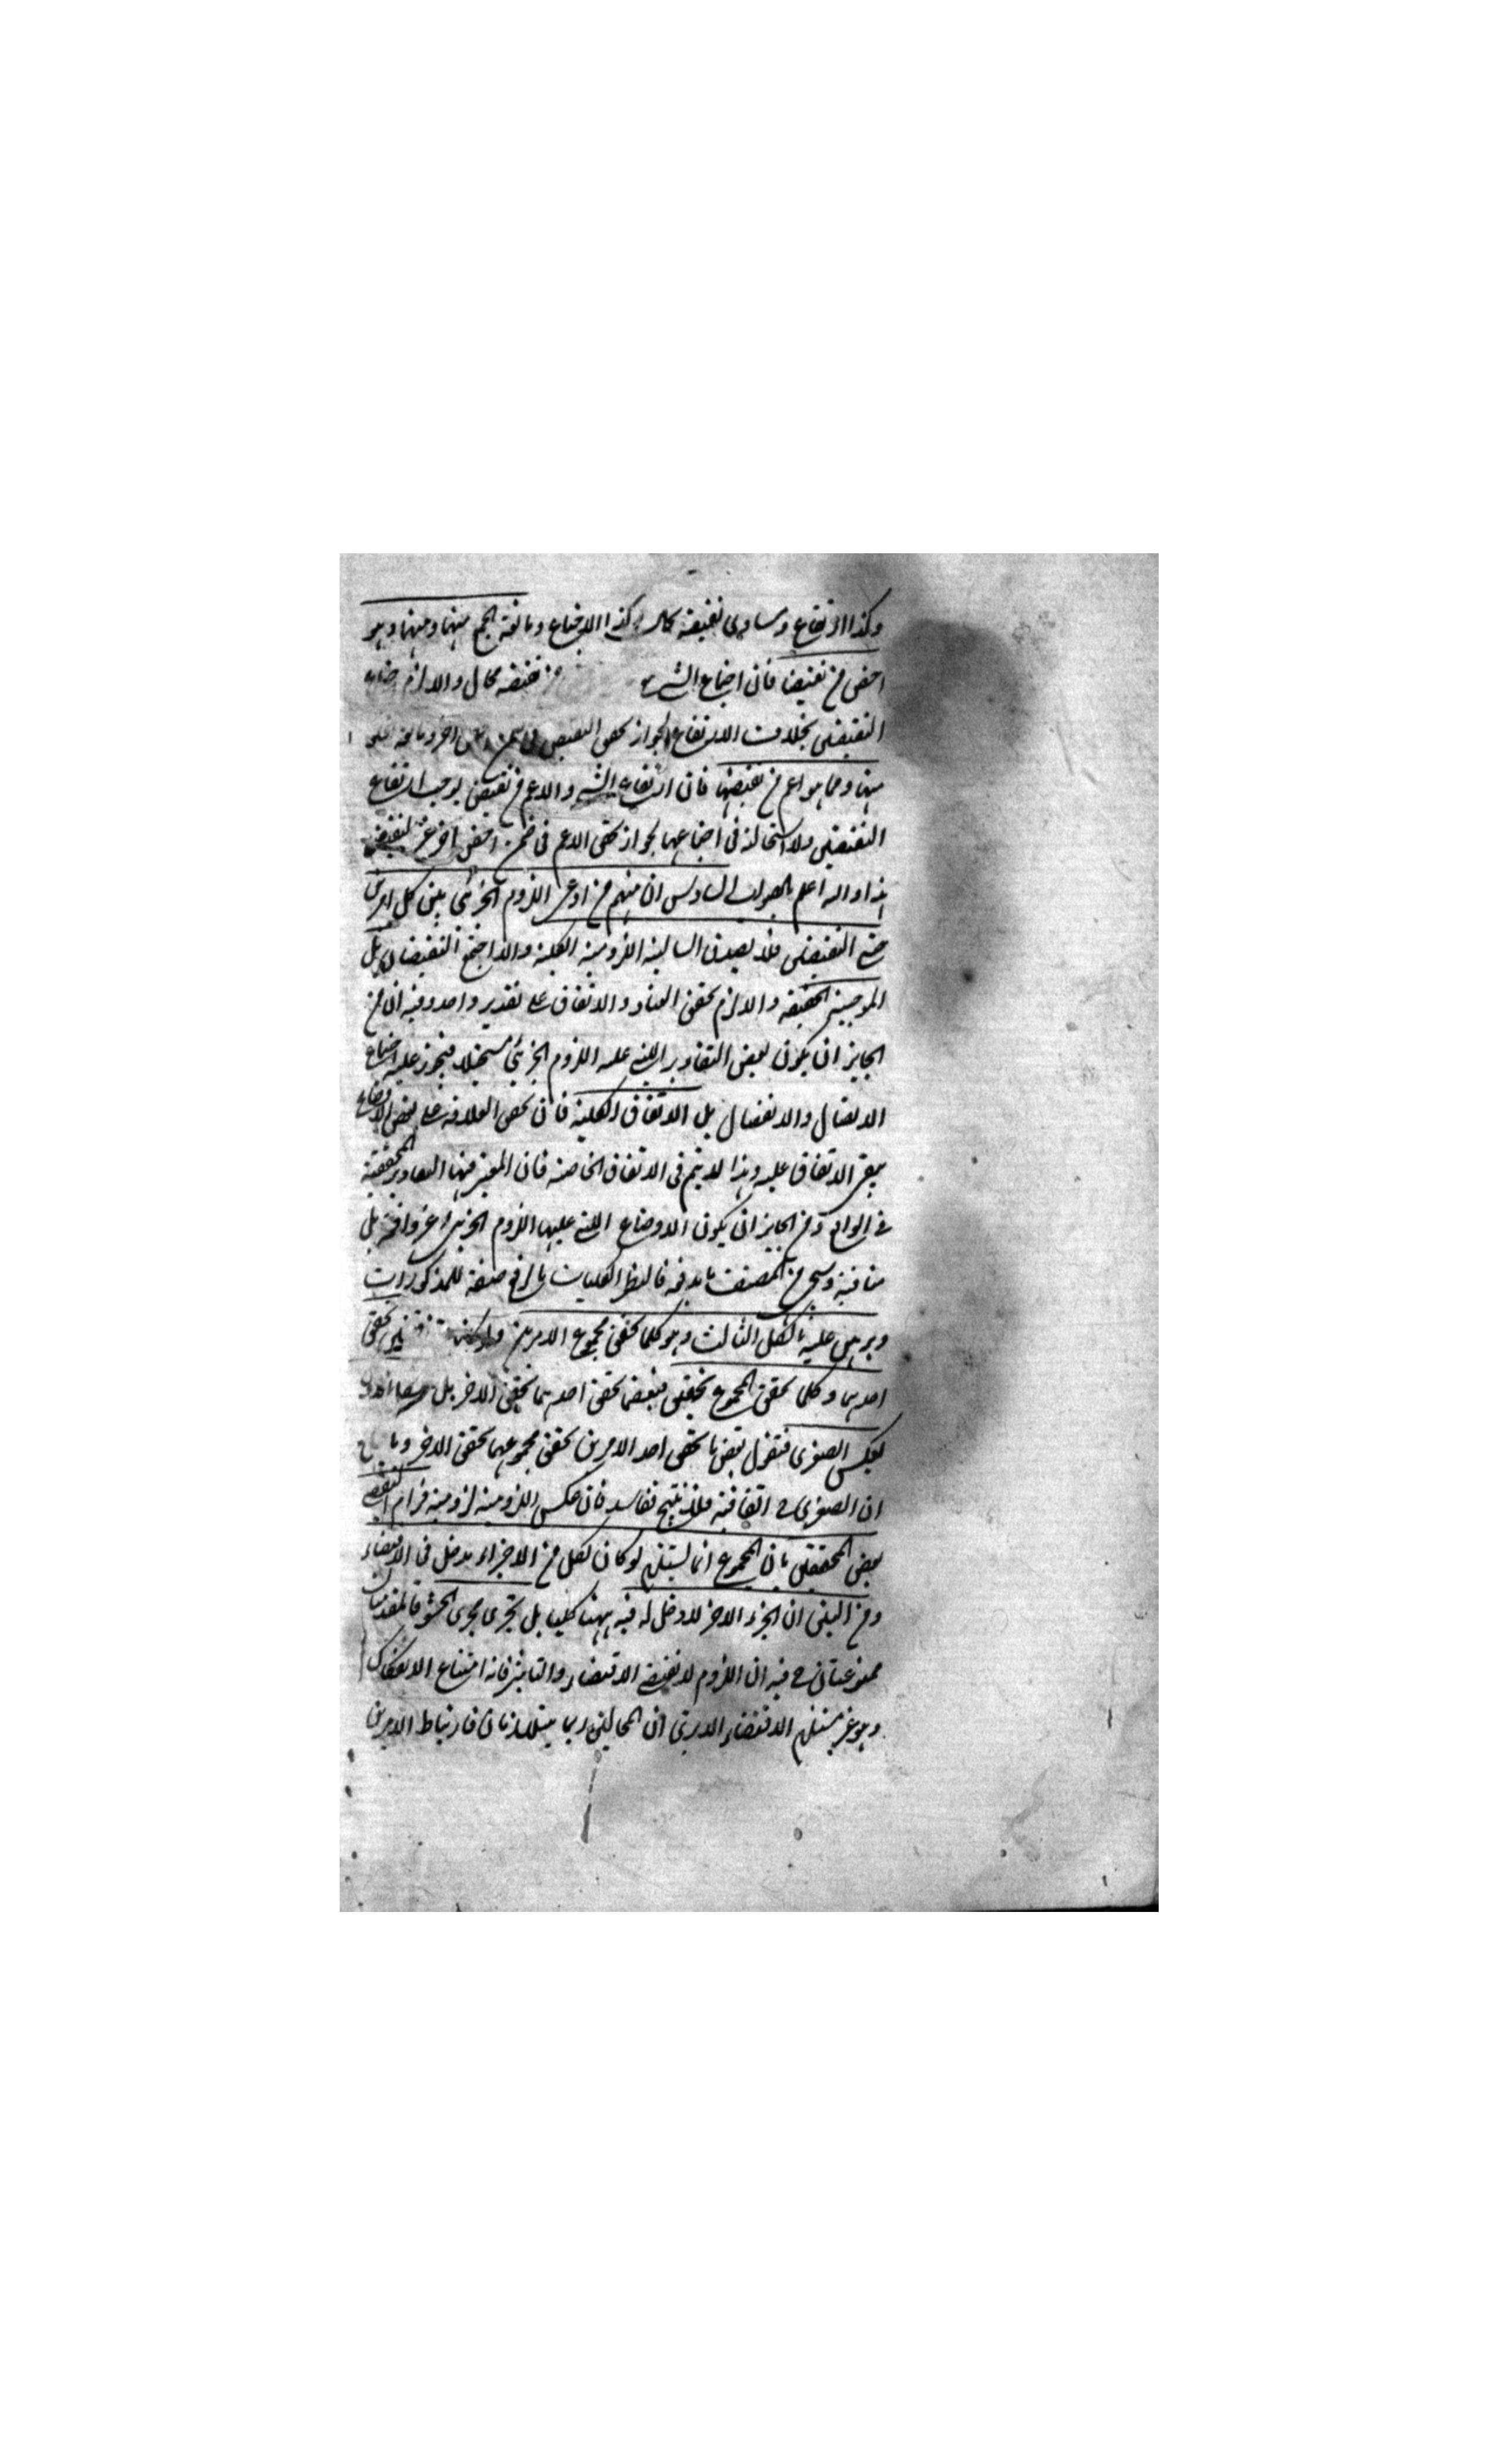 وكذا ارتفاع ومساوى نقيضه محال وكذا الاجتماع ومانعة الجمع منها ومنها وهو
اخص من نقيضها فان اجتماع الشيء نقيضه محال والا لزم اجتماع
النقيضين بخلاف الارتفاع لجواز تحقق النقيض فى اخر ومانعة الخلو
منها ومما هو اعم من نقيضها فان ارتفاع الشيء والاعم من نقيضه يوجب ارتفاع
النقيضين ولا استحالة فى اجتماعهما لجواز تحقق الاعم فى ضمن اخص اخر غير النقيض
هذا والله اعلم بالصواب السادس ان منهم من ادعى اللزوم الجزئي بين كل امرين
حتى النقيضين فلا يصدق السالبة اللزومية الكلية والا اجتمع النقيضان بل
الموجبة الحقيقية والا لزم تحقق العناد والاتفاق على تقدير واحد وفيه ان من
الجايز ان يكون لبعض التقادير التي عليه اللزوم الجزئي مستحيلا فيجوز عليه اجتماع
الاتصال والانفصال بل الاتفاق الكلية فان تحقق العلاقة على بعض الاوضاع
يبقى الاتفاق عليه وهذا لا يتم فى الاتفاق الخاصة فان المعتبر فيها التقادير المحققة
فى الواقع ومن الجايز ان يكون الاوضاع التي عليها اللزوم الجزئي غير واقعة بل
منافية وسيجيء من المصنف ما يدفعه فالنظر الكليات بالرفع صفة للمذكورات
وبرهن عليه بالشكل الثالث وهو كلما تحقق مجموع الامرين تحقق
احدهما وكلما تحقق المجموع تحقق فبعض ما تحقق احدهما تحقق الاخر بل
بعكس الصغرى فنقول بعض ما تحقق احد الامرين تحقق مجموعهما تحقق الاخر
ان الصغرى ح اتفاقية فلا ينتج ففاسد فان عكس اللزومية لزومية فرام التفصي
بعض المحققين بان المجموع انما يستلزم لو كان لكل من الاجزاء مدخل فى الاقتضاء
ومن البين ان الجزء الاخر لا دخل له فيه ههنا كليا بل تجرى مجرى الحشو فالمقدمتان
ممنوعتان ح فيه ان اللزوم لا يقتضى الاقتضاء والتاثير فانه امتناع الانفكاك
وهو غير مستلزم الاقتضاء الا ترى ان المحالين ربما يتلازمان فارتباط الامرين